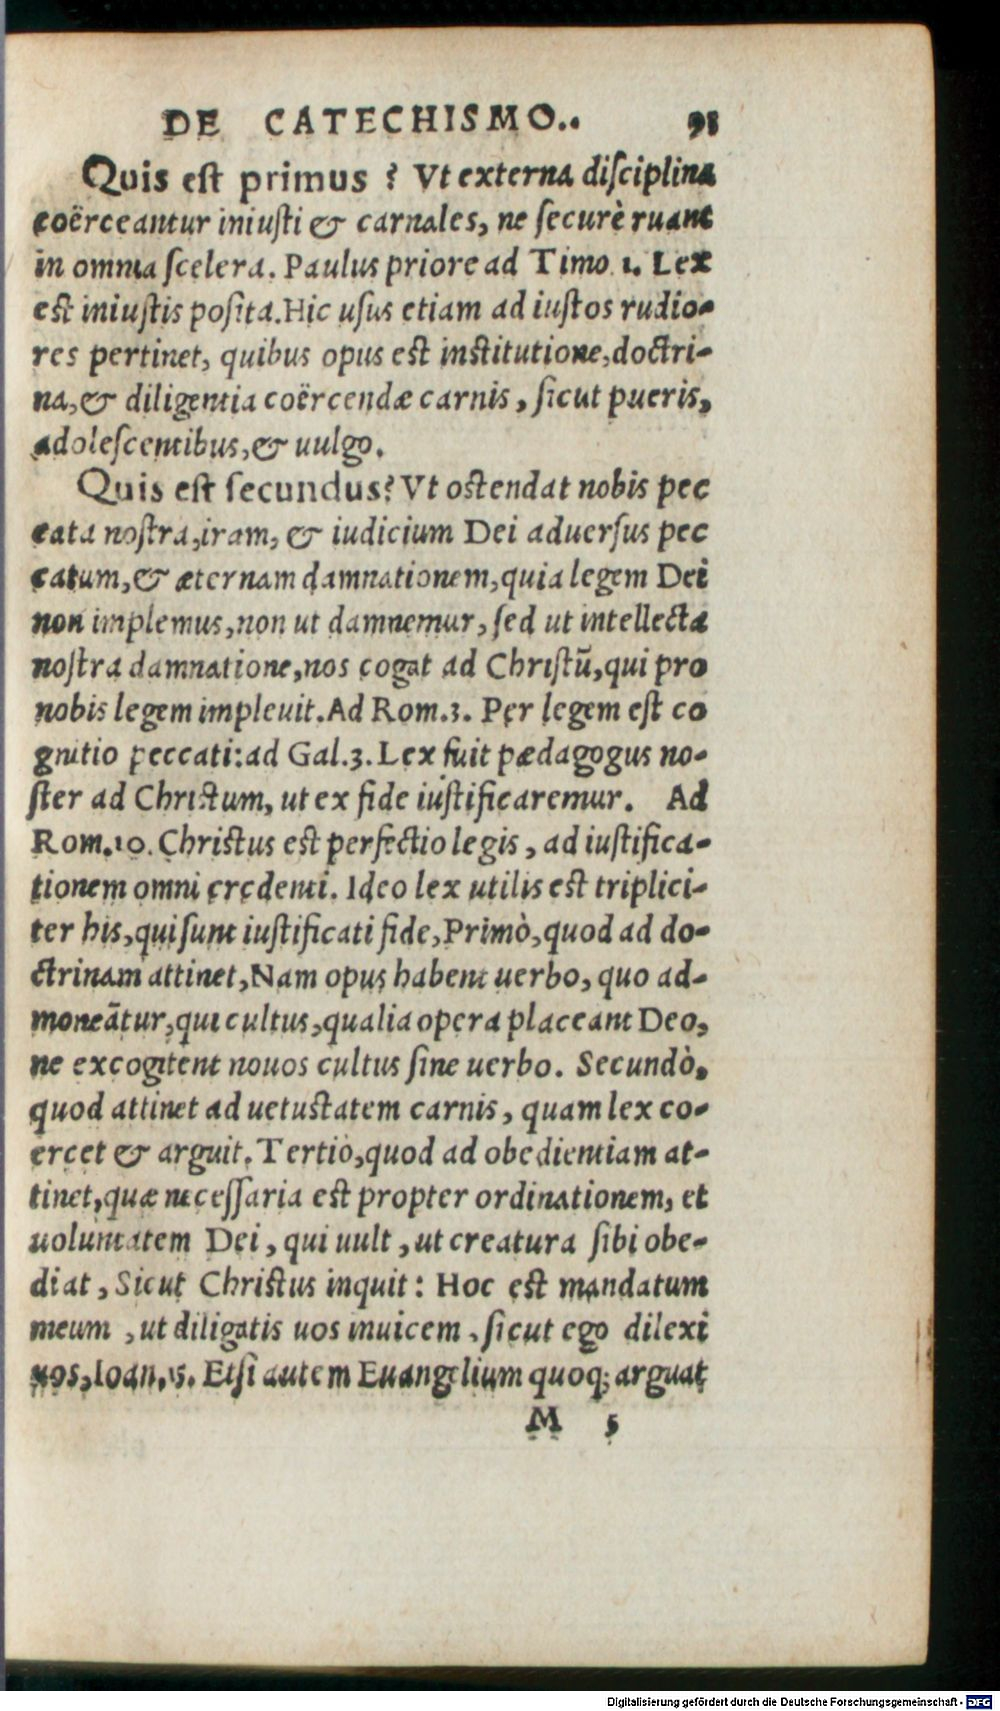 DE CATECHISMO.. 91
Quis est primus ? Vt externa disciplina
coërceantur iniusti & carnales, ne securè ruant
in omnia scelera. Paulus priore ad Timo. 1. Lex
est iniustis posita. Hic usus etiam ad iustos rudio-
res pertinet, quibus opus est institutione, doctri-
na, & diligentia coërcendæ carnis, sicut pueris,
adolescentibus, & uulgo.
Quis est secundus? Vt ostendat nobis pec
cata nostra, iram, & iudicium Dei aduersus pec
catum, & æternam damnationem, quia legem Dei
non implemus, non ut damnemur, sed ut intellecta
nostra damnatione, nos cogat ad Christũ, qui pro
nobis legem impleuit. Ad Rom. 3. Per legem est co
gnitio peccati: ad Gal. 3. Lex fuit pædagogus no-
ster ad Christum, ut ex fide iustificaremur. Ad
Rom. 10. Christus est perfectio legis, ad iustifica-
tionem omni credenti. Ideo lex utilis est triplici-
ter his, qui sunt iustificati fide, Primò, quod ad do-
ctrinam attinet, Nam opus habent uerbo, quo ad-
moneãtur, qui cultus, qualia opera placeant Deo,
ne excogitent nouos cultus sine uerbo. Secundò,
quod attinet ad uetustatem carnis, quam lex co-
ercet & arguit. Tertiò, quod ad obedientiam at-
tinet, quæ necessaria est propter ordinationem, et
uoluntatem Dei, qui uult, ut creatura sibi obe-
diat, Sicut Christus inquit: Hoc est mandatum
meum, ut diligatis uos inuicem, sicut ego dilexi
uos, Ioan. 15. Etsi autem Euangelium quoq; arguat
M 5
Digitalisierung gefördert durch die Deutsche Forschungsgemeinschaft - DFG